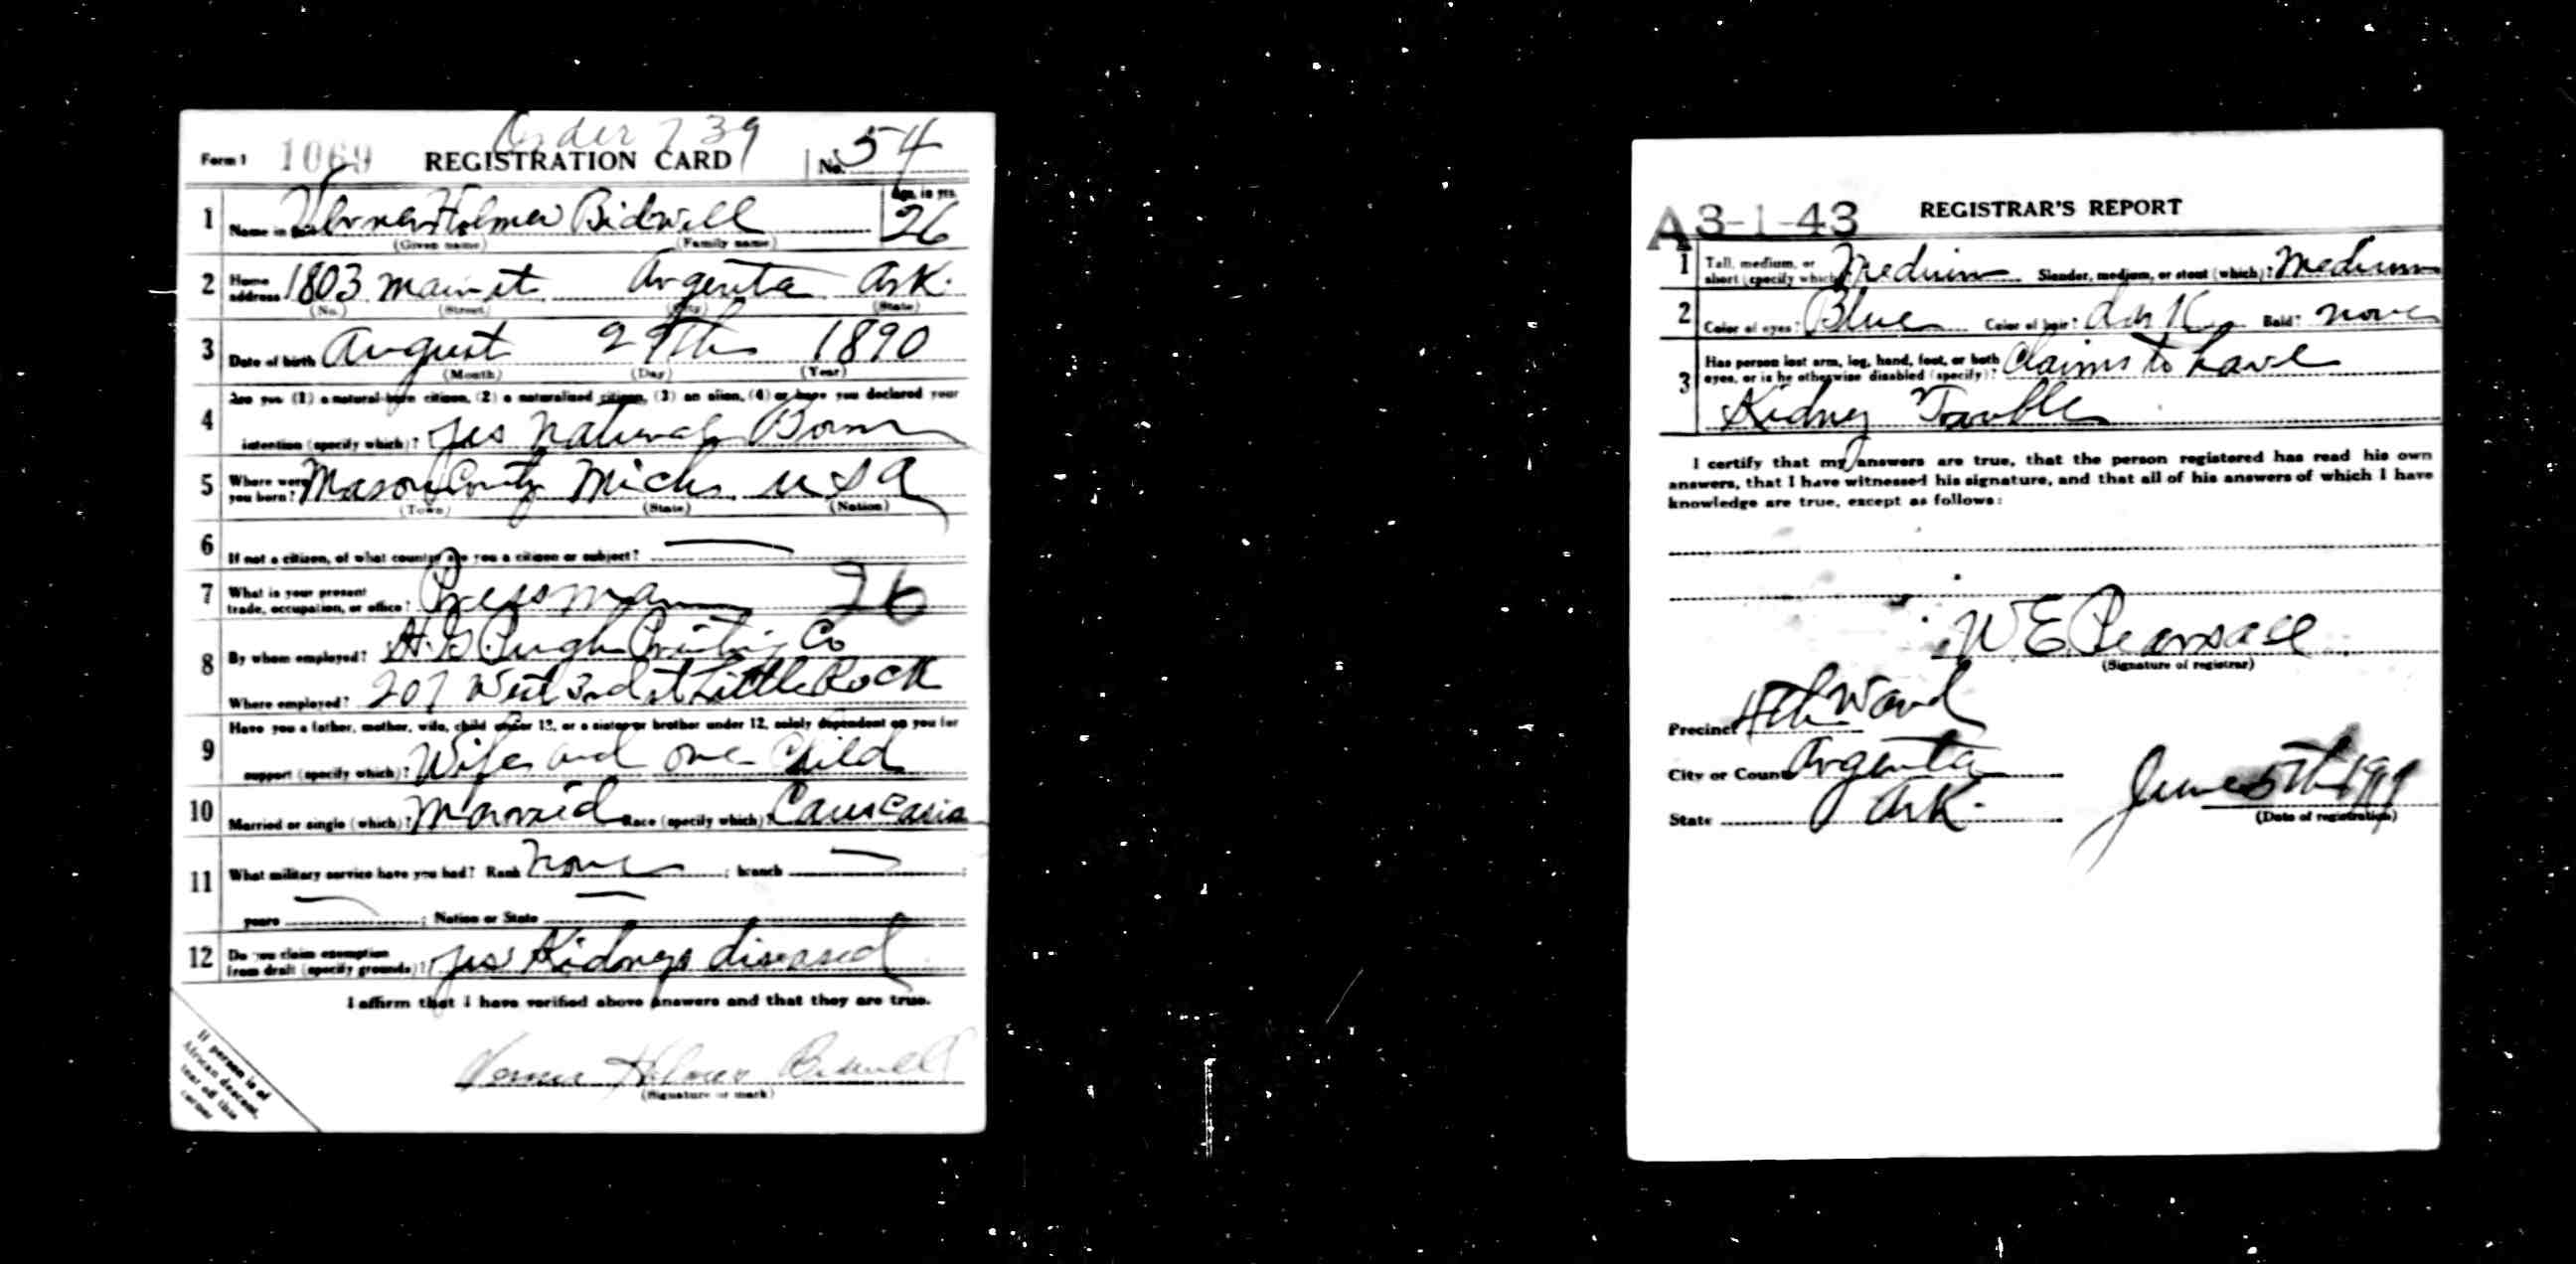 Order 739
Form 1 1069 REGISTRATION CARD No. 54
1 Name in full Verner Holmes Bidwell Age, in yrs. 26
(Given name) (Family name)
2 Home address 1803 Main st Argenta Ark.
(No.) (Street) (City) (State)
3 Date of birth August 29th 1890
(Month) (Day) (Year)
4 Are you (1) a natural-born citizen, (2) a naturalized citizen, (3) an alien, (4) or have you declared your
intention (specify which)? yes natural Born
5 Where were you born? Mason County Mich. USA
(Town) (State) (Nation)
6 If not a citizen, of what country are you a citizen or subject? —
7 What is your present trade, occupation, or office? Pressman 26
8 By whom employed? H. G. Pugh Printing Co
Where employed? 207 West 3rd st Little Rock
9 Have you a father, mother, wife, child under 12, or a sister or brother under 12, solely dependent on you for
support (specify which)? Wife and one Child
10 Married or single (which)? Married Race (specify which)? Caucasia
11 What military service have you had? Rank none ; branch — ;
years — ; Nation or State —
12 Do you claim exemption from draft (specify grounds)? yes Kidneys diseased
I affirm that I have verified above answers and that they are true.
Verner Holmes Bidwell
(Signature or mark)
If person is of
African descent,
tear off this
corner
A3-1-43 REGISTRAR'S REPORT
1 Tall, medium, or short (specify which)? Medium Slender, medium, or stout (which)? Medium
2 Color of eyes? Blue Color of hair? dark Bald? none
3 Has person lost arm, leg, hand, foot, or both eyes, or is he otherwise disabled (specify)? Claims to have
Kidney Trouble
I certify that my answers are true, that the person registered has read his own
answers, that I have witnessed his signature, and that all of his answers of which I have
knowledge are true, except as follows:
W E Pearsall
(Signature of registrar)
Precinct 4th Ward
City or County Argenta
State Ark. June 5th 1917
(Date of registration)